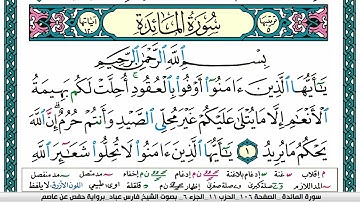 سُورَةُ المَائِدَة
بِسْمِ ٱللَّهِ ٱلرَّحْمَٰنِ ٱلرَّحِيمِ
يَٰٓأَيُّهَا ٱلَّذِينَ ءَامَنُوٓا۟ أَوْفُوا۟ بِٱلْعُقُودِ أُحِلَّتْ لَكُم بَهِيمَةُ
ٱلْأَنْعَٰمِ إِلَّا مَا يُتْلَىٰ عَلَيْكُمْ غَيْرَ مُحِلِّى ٱلصَّيْدِ وَأَنتُمْ حُرُمٌ إِنَّ ٱللَّهَ
يَحْكُمُ مَا يُرِيدُ ١ يَٰٓأَيُّهَا ٱلَّذِينَ ءَامَنُوا۟ لَا تُحِلُّوا۟ شَعَٰٓئِرَ ٱللَّهِ
سورة المائدة - الصفحة ١٠٦ - الحزب ١١ - الجزء ٦ - بصوت الشيخ فارس عباد - برواية حفص عن عاصم